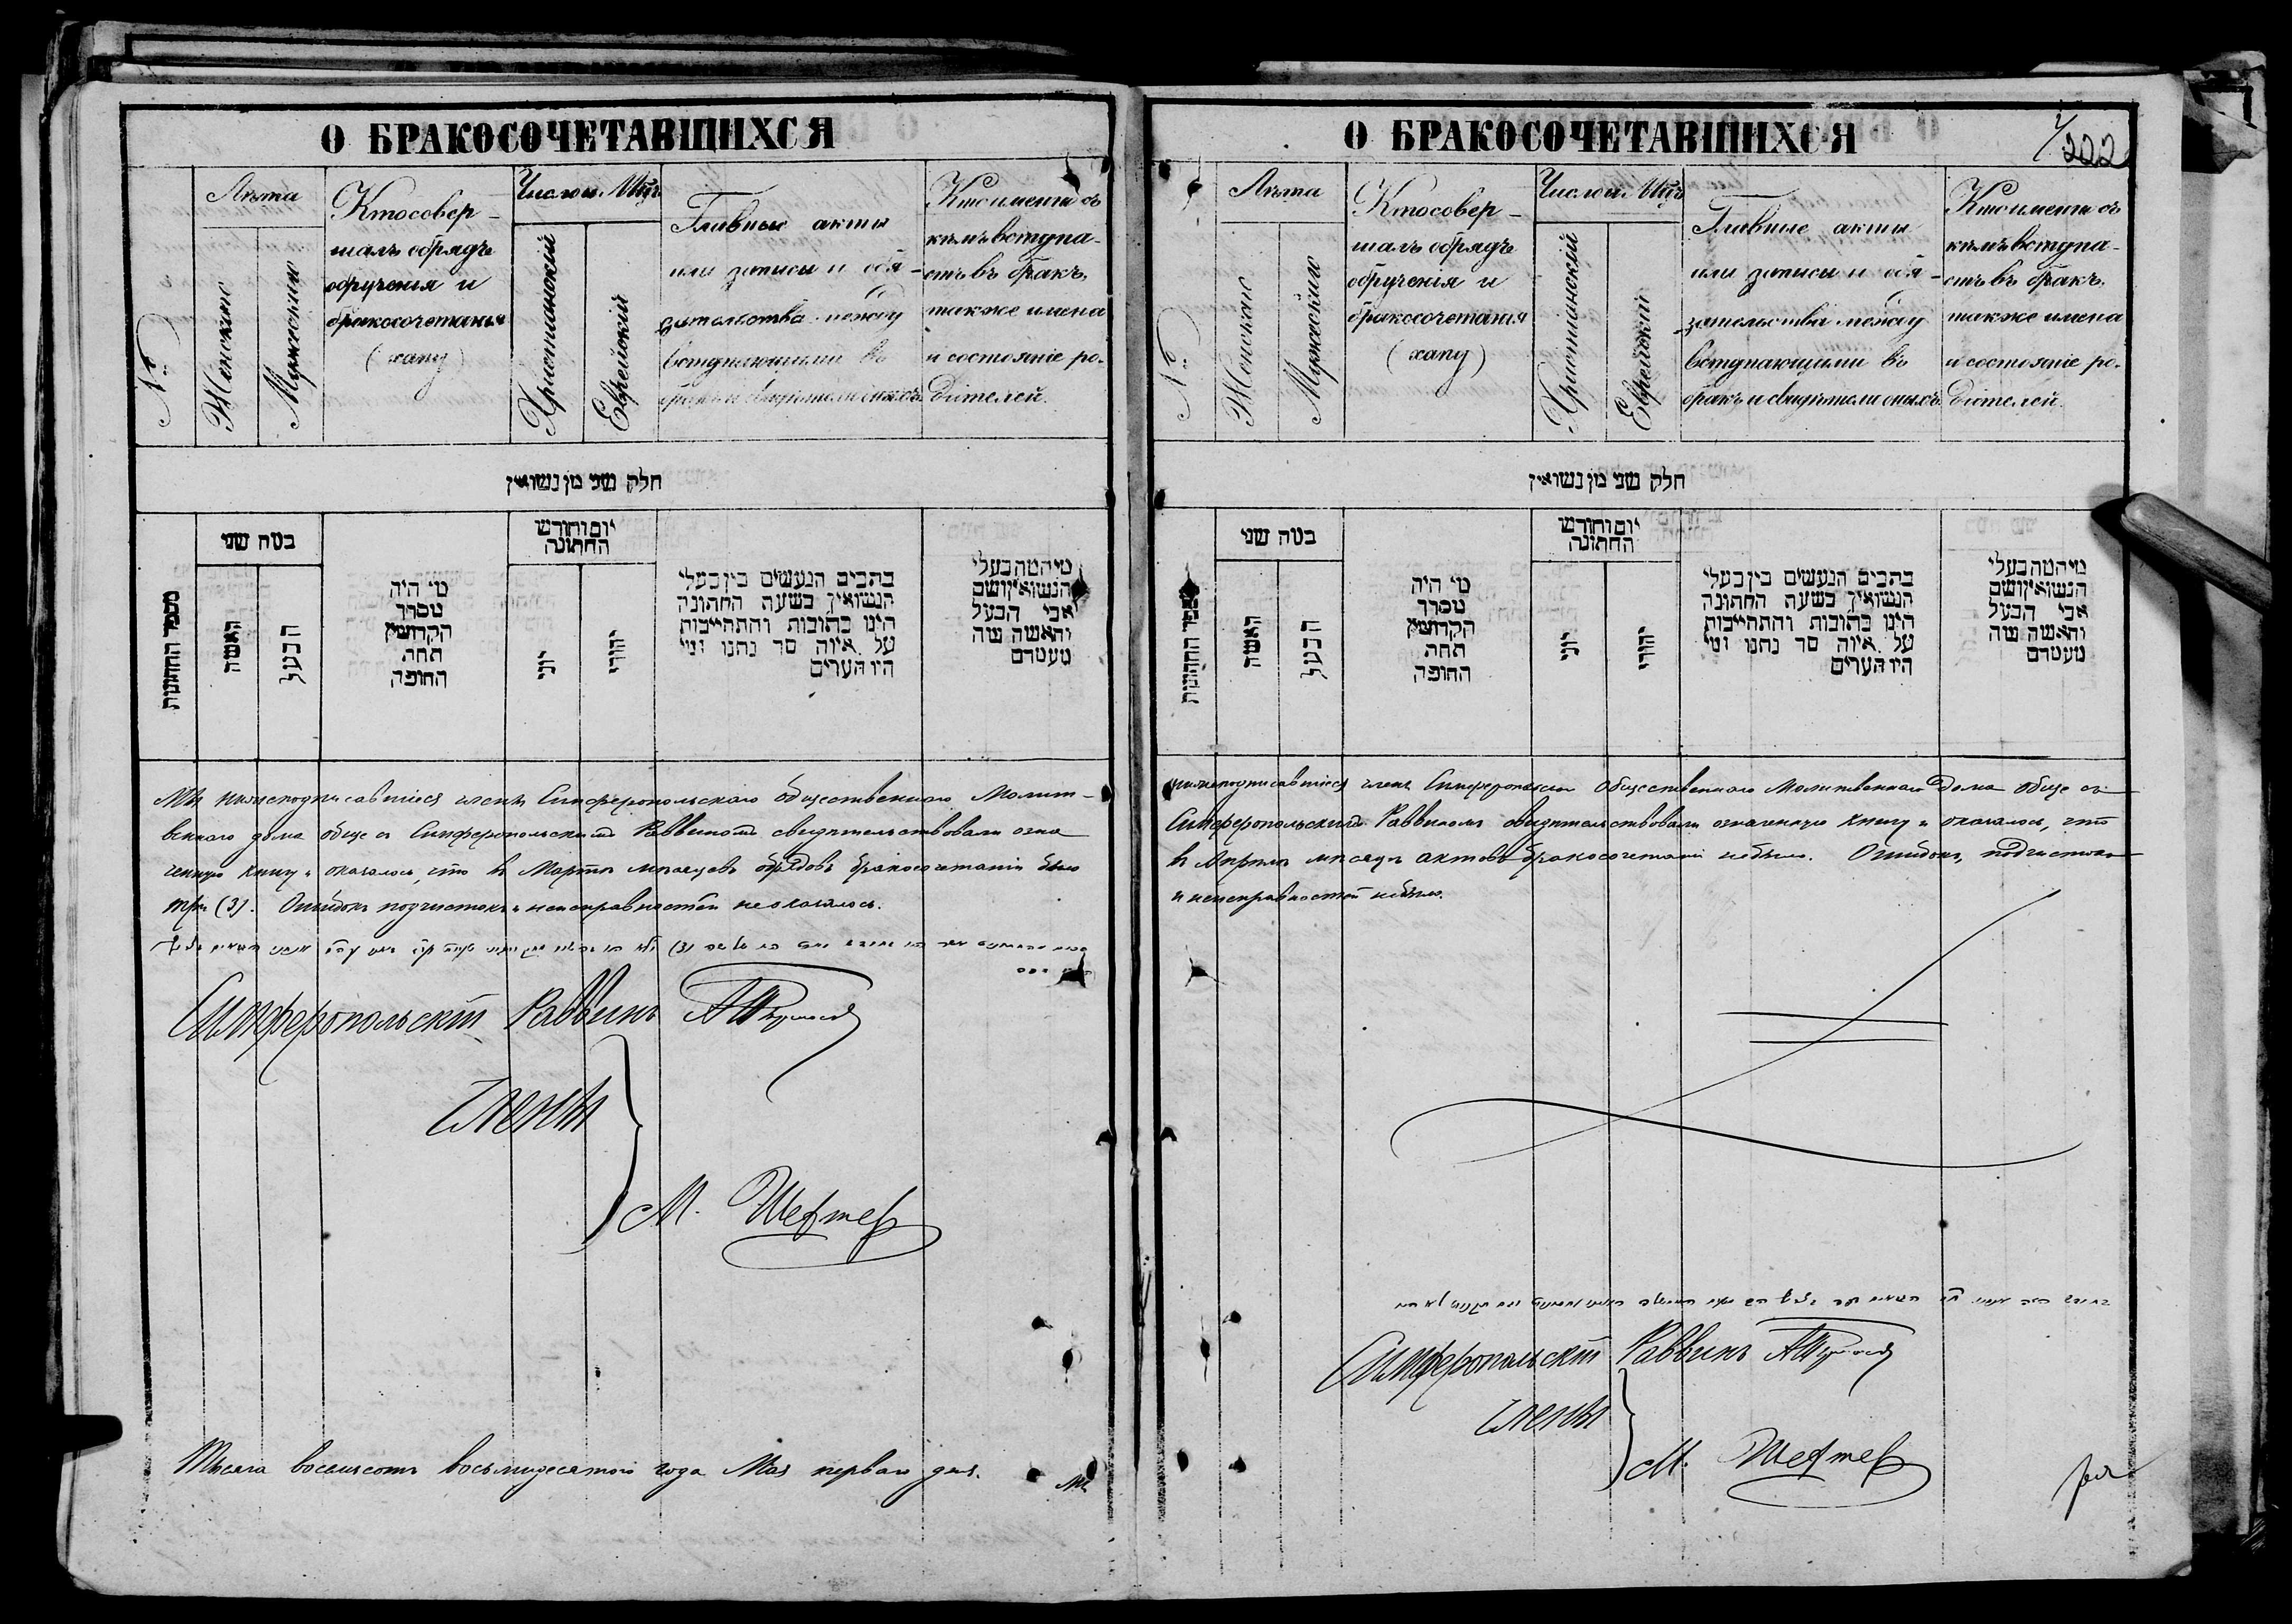 О БРАКОСОЧЕТАВШИХСЯ
№
Лѣта
Женскию
Мужескию
Ктосовер-
шалъ обрядъ
обрученія и
бракосочетанія
(хапу)
Число и. Мцъ
Христіанскій
Еврейскій
Главные акты
или записи и обя-
зательства между
вступающими въ
бракъ и свидѣтели оныхъ.
Ктоименно съ
кѣмъ вступа-
етъ въ бракъ,
также имена
и состояніе ро-
дителей.
חלק שני מן נשואין
מספר החתונות
במה שני
האשה
הבעל
מי היה
מסדר
הקדושין
תחת
החופה
יום וחודש
החתונה
יוני
יהודי
כתבים הנעשים בין בעלי
הנשואין בשעה החתונה
הינו כתובות והתחייבות
על איזה סך נתנו ומי
היו העדים
מי המה בעלי
הנשואין ושם
אבי הבעל
והאשה מה
מעמדם
Мы нижеподписавшіеся члены Симферопольскаго общественнаго Молит-
веннаго дома обще съ Симферопольскимъ Раввиномъ свидѣтельствовали озна
ченную книгу и оказалось, что въ Мартѣ мѣсяцѣ обрядовъ бракосочетаній было
три (3). Ошибокъ подчистокъ и неисправностей не оказалось.
Симферопольскій Раввинъ
Члены
М. Шефтер
Тысяча восемьсотъ восьмидесятого года Мая перваго дня. Мы
О БРАКОСОЧЕТАВШИХСЯ
222
№
Лѣта
Женскию
Мужескию
Ктосовер-
шалъ обрядъ
обрученія и
бракосочетанія
(хапу)
Число и. Мцъ
Христіанскій
Еврейскій
Главные акты
или записи и обя-
зательства между
вступающими въ
бракъ и свидѣтели оныхъ.
Ктоименно съ
кѣмъ вступа-
етъ въ бракъ,
также имена
и состояніе ро-
дителей.
חלק שני מן נשואין
מספר החתונות
במה שני
האשה
הבעל
מי היה
מסדר
הקדושין
תחת
החופה
יום וחודש
החתונה
יוני
יהודי
כתבים הנעשים בין בעלי
הנשואין בשעה החתונה
הינו כתובות והתחייבות
על איזה סך נתנו ומי
היו העדים
מי המה בעלי
הנשואין ושם
אבי הבעל
והאשה מה
מעמדם
нижеподписавшіеся члены Симферопольскаго Общественнаго Молитвеннаго Дома обще съ
Симферопольскимъ Раввиномъ свидѣтельствовали означенную книгу и оказалось, что
въ Апрѣлѣ мѣсяцѣ актовъ бракосочетаній не было. Ошибокъ, подчистокъ
и неисправностей не было.
Симферопольскій Раввинъ
Члены
М. Шефтер